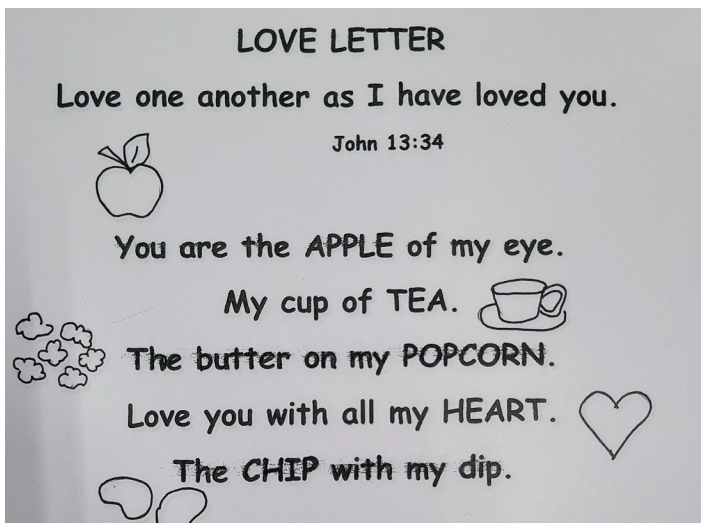 LOVE LETTER
Love one another as I have loved you.
John 13:34
You are the APPLE of my eye.
My cup of TEA.
The butter on my POPCORN.
Love you with all my HEART.
The CHIP with my dip.